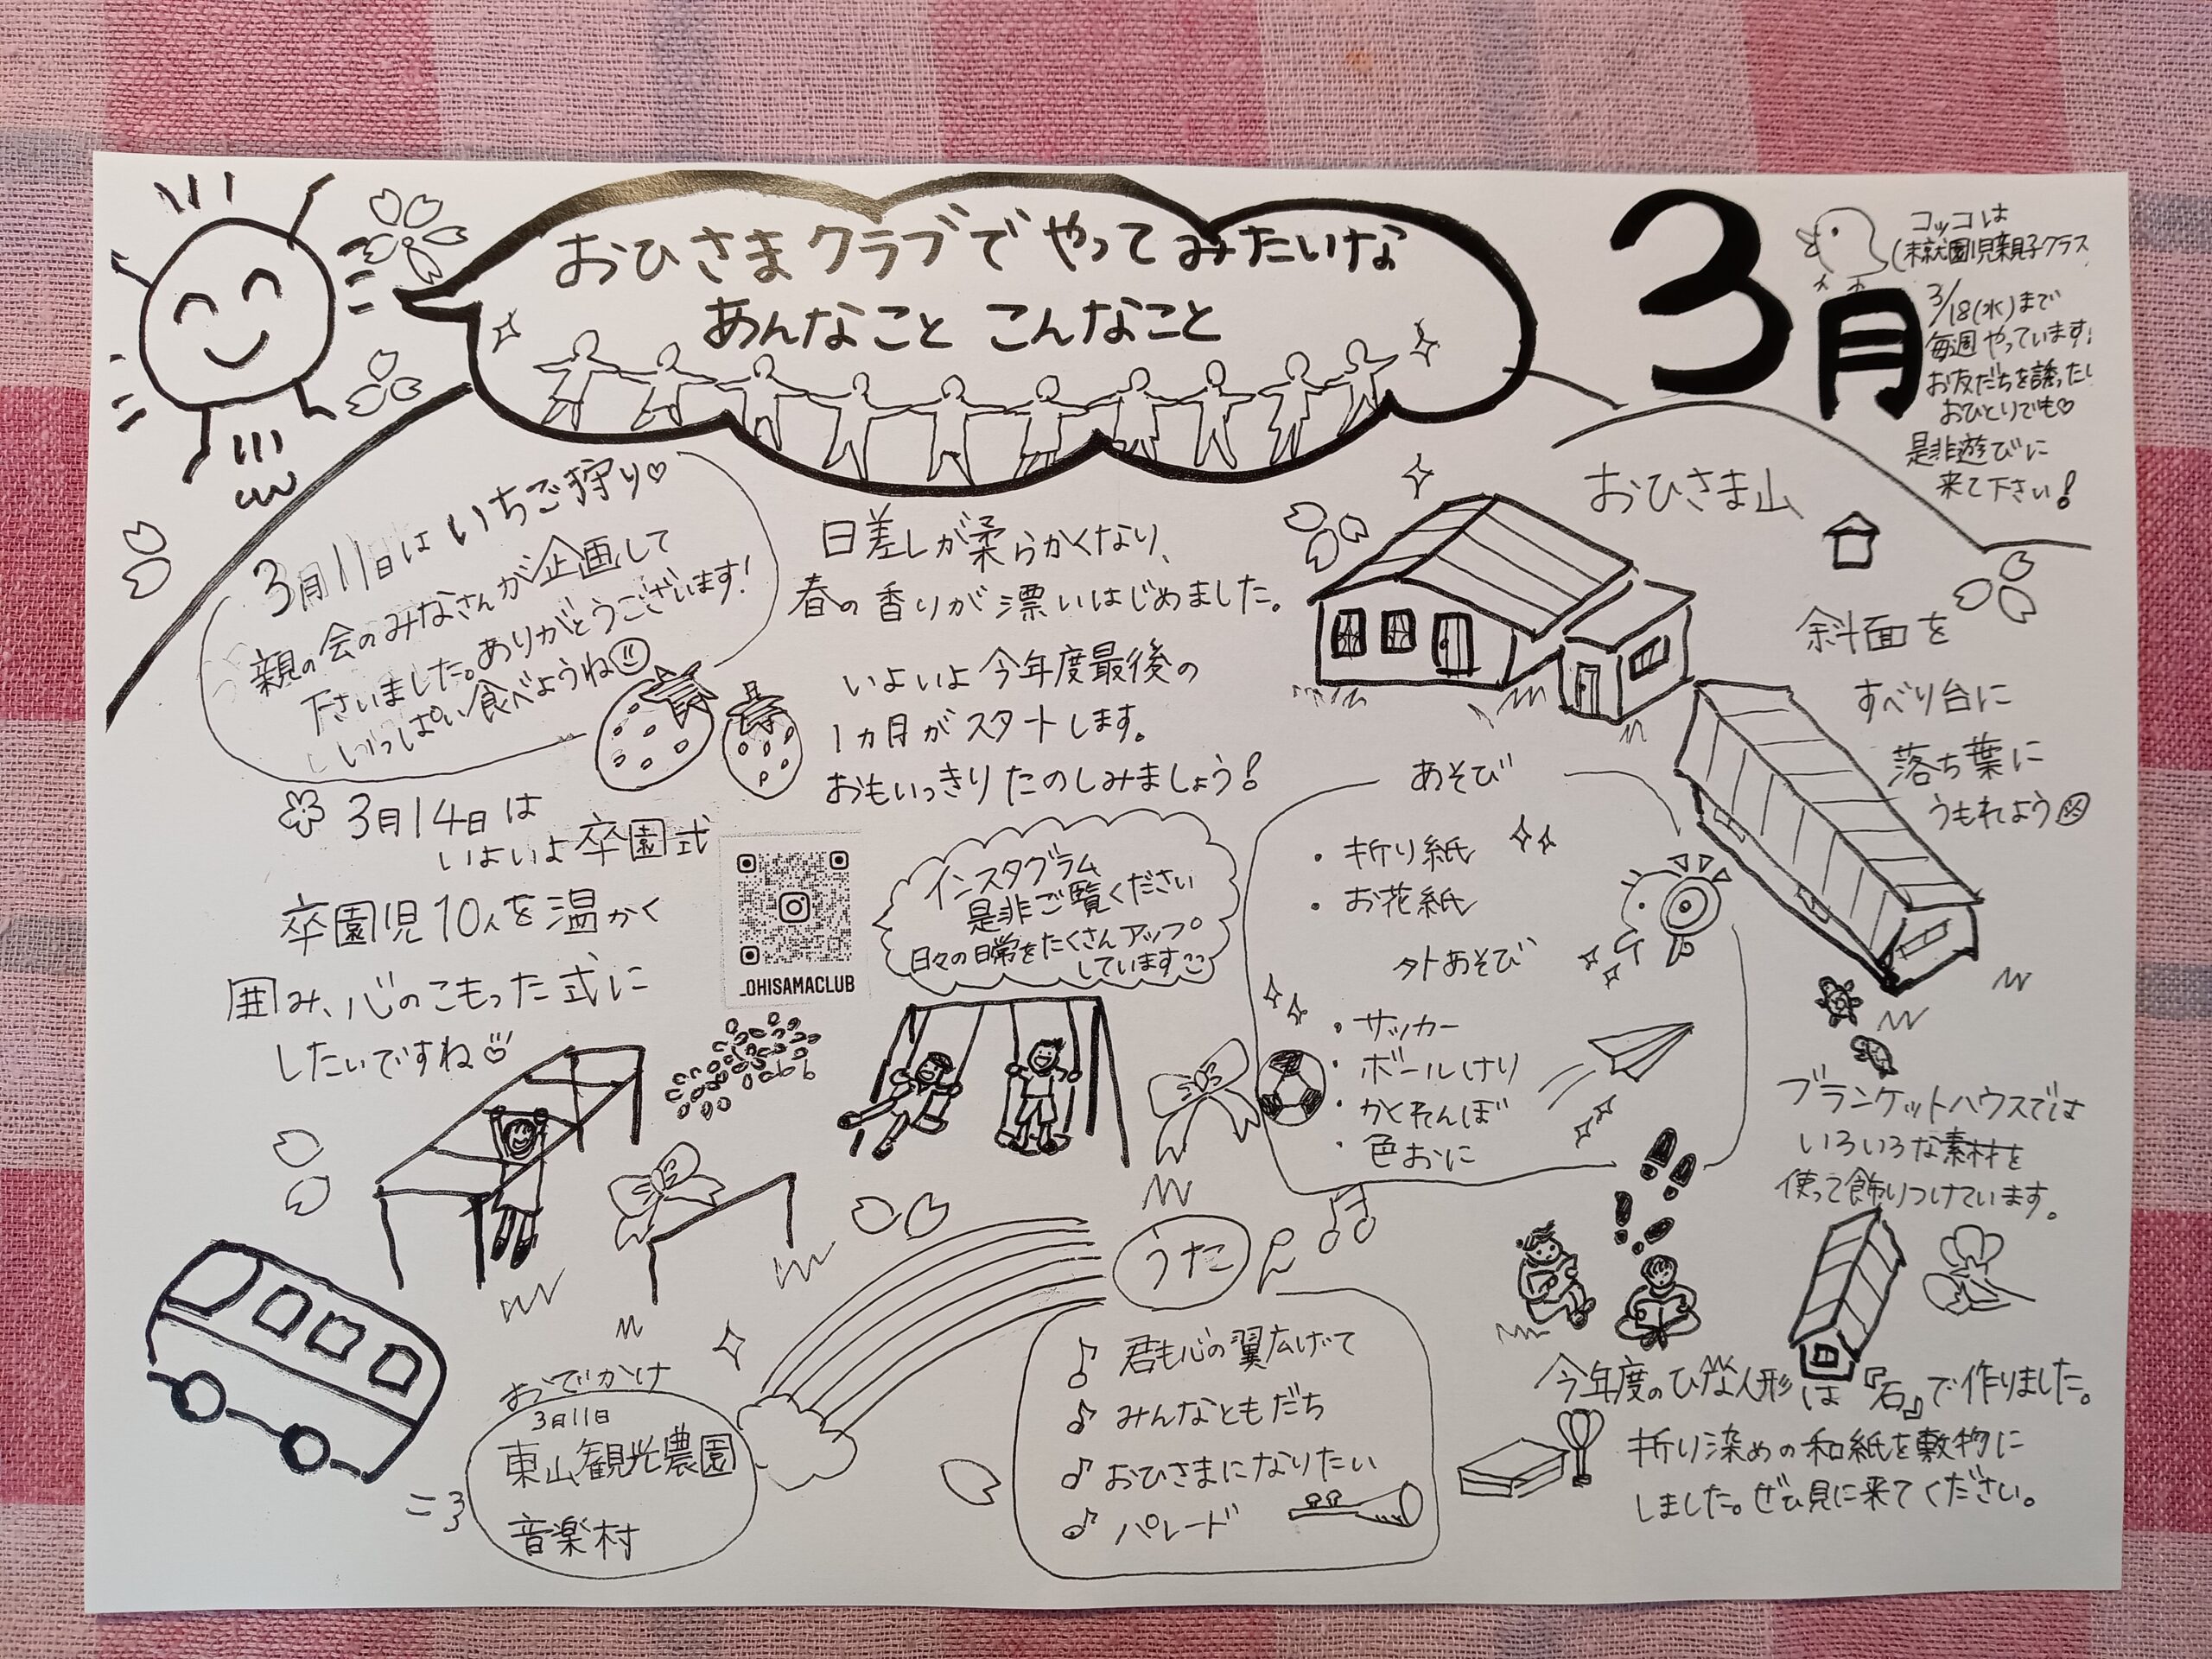 おひさまクラブでやってみたいな
あんなこと こんなこと
3月
コッコは
(未就園児親子クラス
3/18(水)まで
毎週やっています!
お友だちを誘ったり
おひとりでも♡
是非遊びに
来て下さい!
3月11日はいちご狩り♡
親の会のみなさんが企画して
下さいました。ありがとうございます!
いっぱい食べようね
日差しが柔らかくなり、
春の香りが漂いはじめました。
いよいよ今年度最後の
1ヵ月がスタートします。
おもいっきりたのしみましょう!
おひさま山
斜面を
すべり台に
落ち葉に
うもれよう
3月14日は
いよいよ卒園式
卒園児10人を温かく
囲み、心のこもった式に
したいですね
_OHISAMACLUB
インスタグラム
是非ご覧ください
日々の日常をたくさんアップ
しています
あそび
・折り紙
・お花紙
外あそび
・サッカー
・ボールけり
・かくれんぼ
・色おに
ブランケットハウスでは
いろいろな素材を
使って飾りつけています。
おでかけ
3月11日
東山観光農園
音楽村
うた
♪ 君も心の翼広げて
♪ みんなともだち
♪ おひさまになりたい
♪ パレード
今年度のひな人形は『石』で作りました。
折り染めの和紙を敷物に
しました。ぜひ見に来てください。